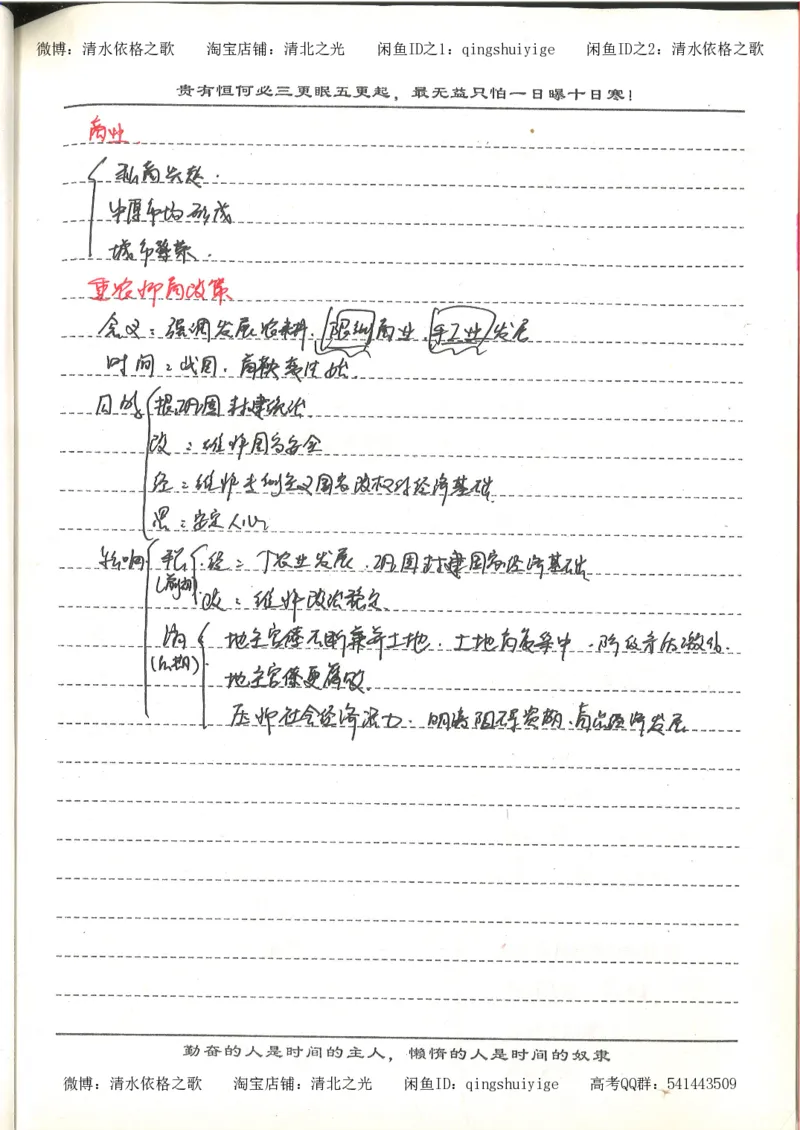 微博：清水依格之歌 淘宝店铺：清北之光 闲鱼ID之1：qingshuiyige 闲鱼ID之2：清水依格之歌
贵有恒何必三更眠五更起，最无益只怕一日曝十日寒！
商业
私商兴起．
中原市场形成
城市繁荣．
重农抑商政策
含义：强调发展农耕，限制商业、手工业发展
时间：战国．商鞅变法始．
目的 根：巩固封建统治．
政：维护国家安全
经：维护专制主义国家政权对经济基础
思：安定人心
影响 积(前期) 经：↑农业发展．巩固封建国家经济基础
政：维护政治稳定．
消(后期) 地主官僚不断兼并土地．土地高度集中．阶级矛盾激化．
地主官僚更腐败．
压抑社会经济活力．明清阻碍资萌．商品经济发展
勤奋的人是时间的主人，懒惰的人是时间的奴隶
微博：清水依格之歌 淘宝店铺：清北之光 闲鱼ID：qingshuiyige 高考QQ群：541443509